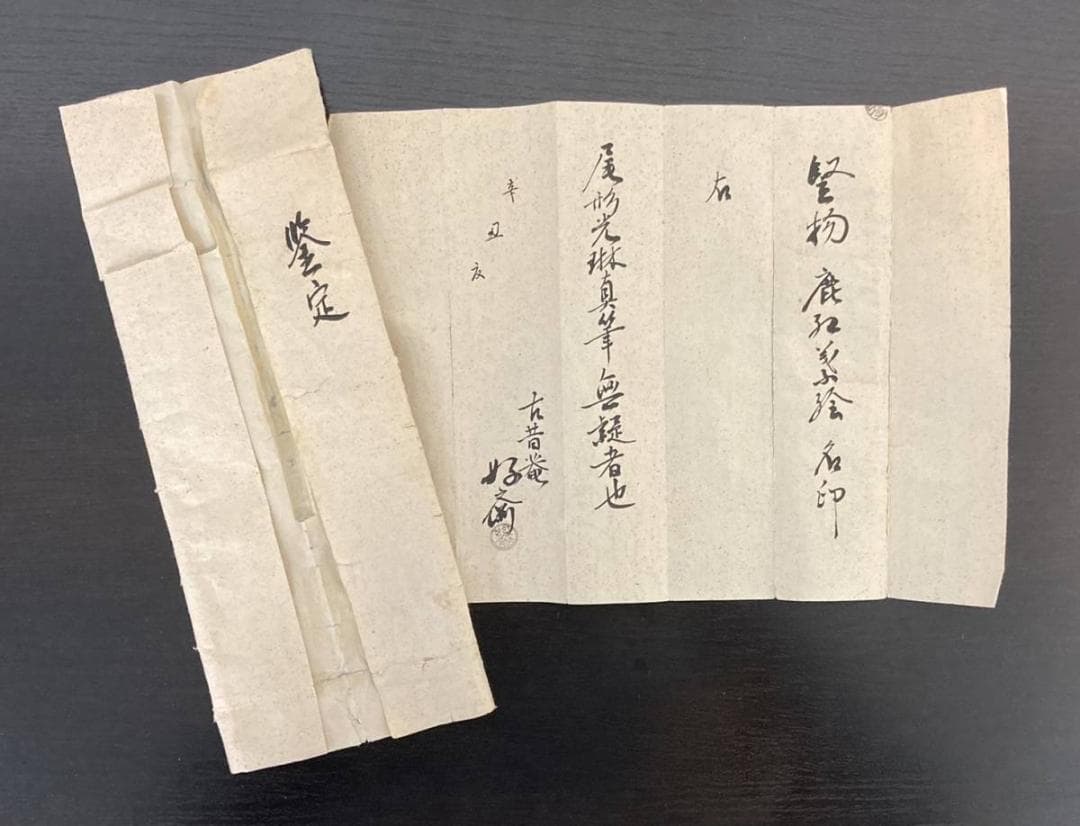 竪物 鹿紅葉絵 名印
右
尾形光琳真筆無疑者也
辛丑
古昔菴
好
鑒定